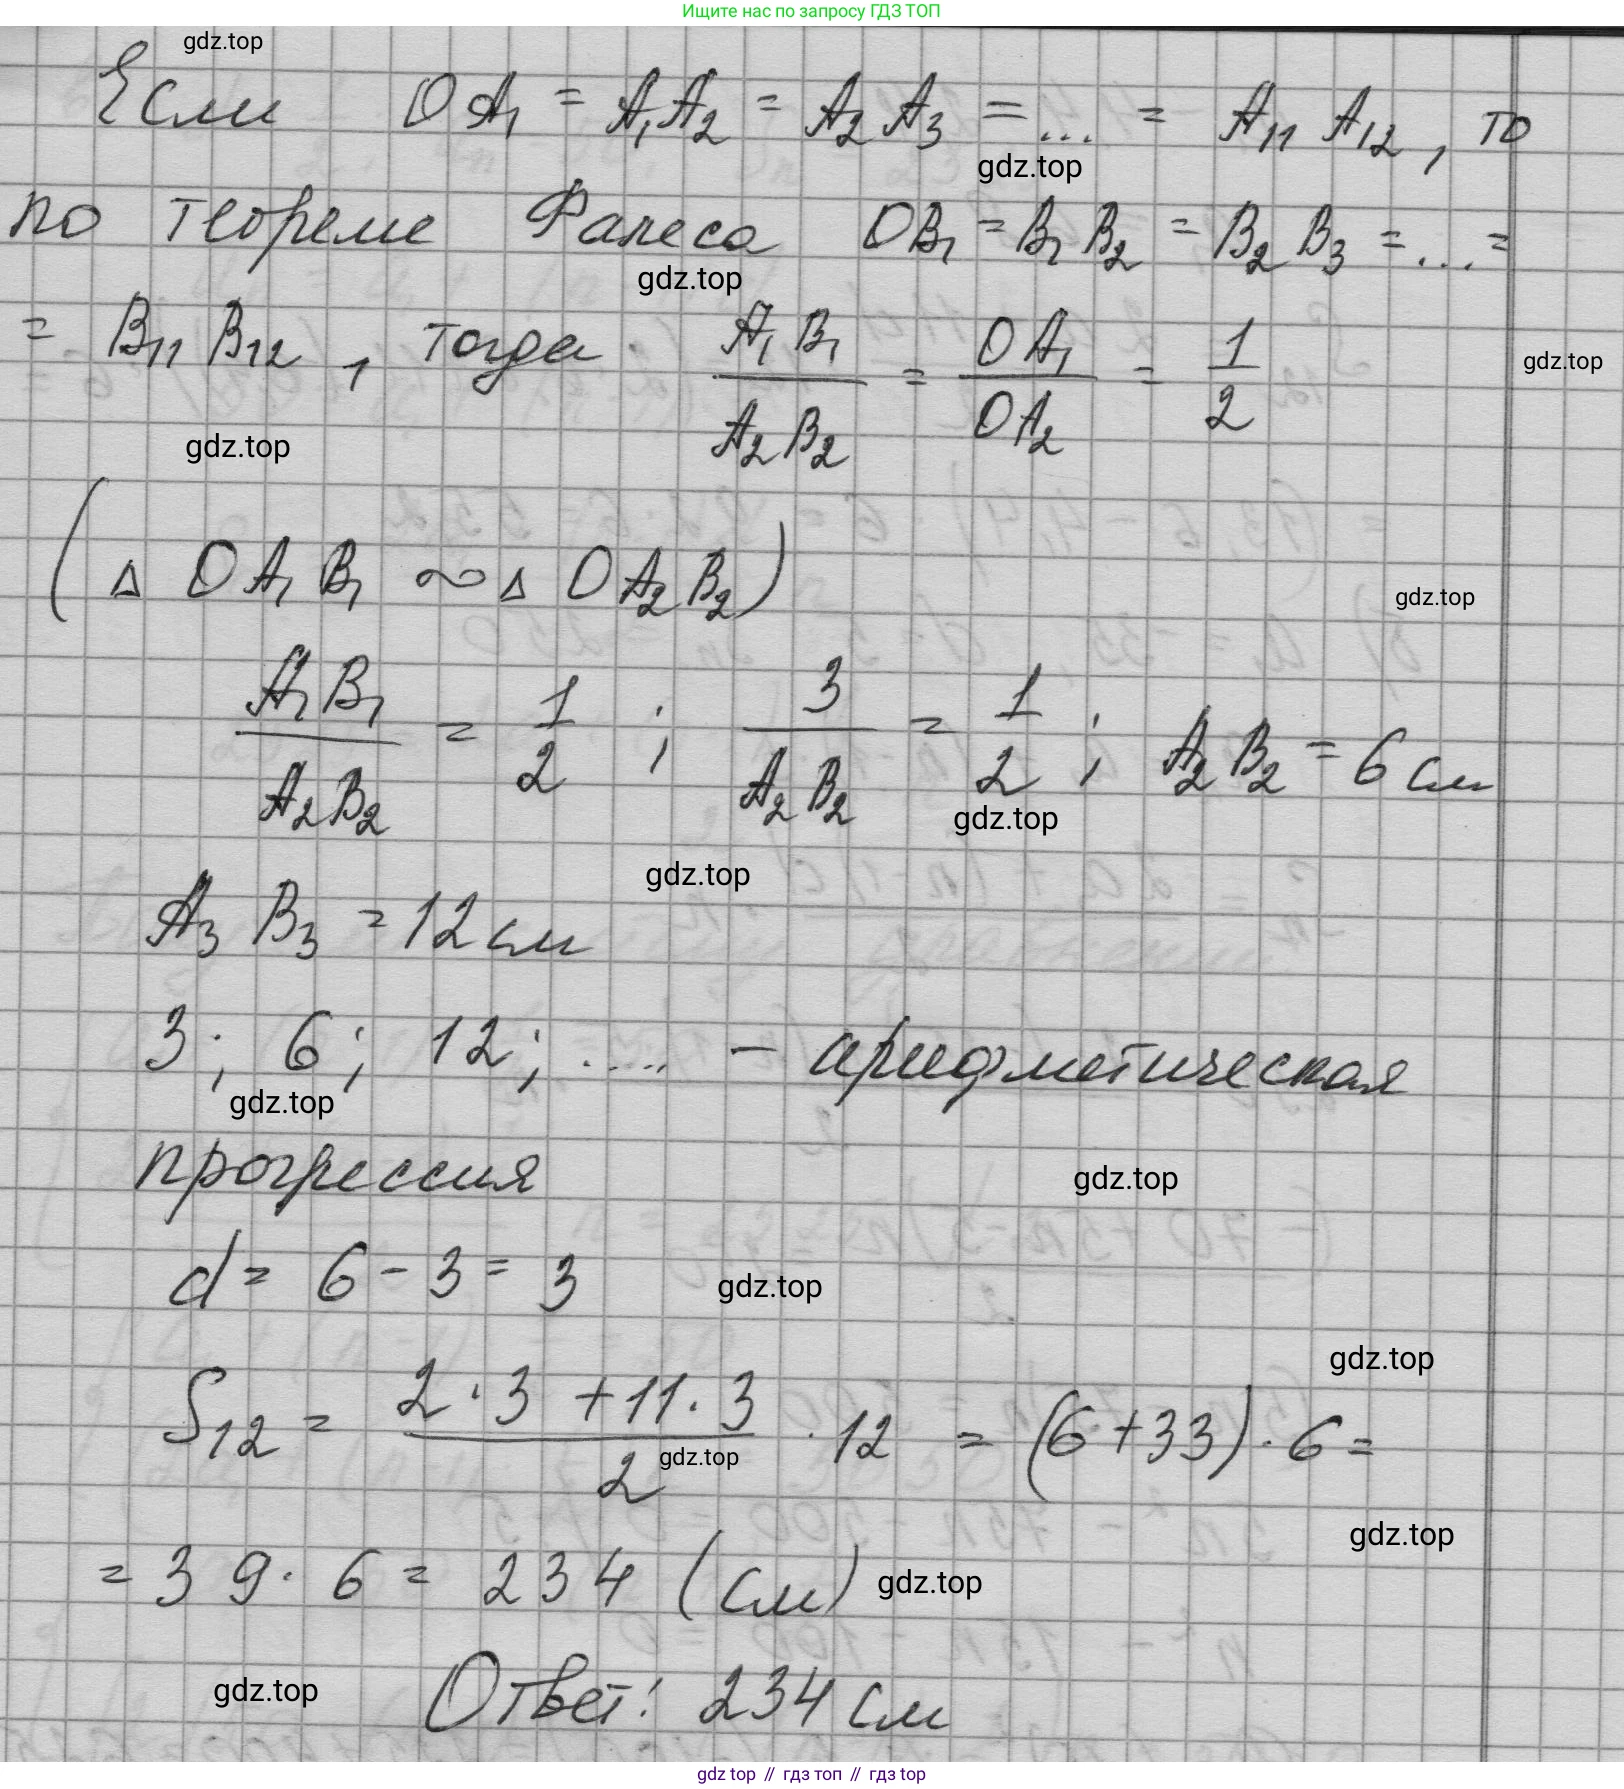 Ищите нас по запросу ГДЗ ТОП
gdz.top
Если OA₁ = A₁A₂ = A₂A₃ = ... = A₁₁A₁₂, то
gdz.top
по теореме Фалеса OB₁ = B₁B₂ = B₂B₃ = ... =
gdz.top
= B₁₁B₁₂, тогда A₁B₁/A₂B₂ = OA₁/OA₂ = 1/2
gdz.top
gdz.top
(△ OA₁B₁ ∾ △ OA₂B₂)
gdz.top
A₁B₁/A₂B₂ = 1/2; 3/A₂B₂ = 1/2; A₂B₂ = 6 см
gdz.top
gdz.top
A₃B₃ = 12 см
3; 6; 12; .... – арифметическая
gdz.top
прогрессия
gdz.top
d = 6 - 3 = 3
gdz.top
gdz.top
S₁₂ = (2·3 + 11·3)/2 · 12 = (6+33)·6 =
gdz.top
gdz.top
= 39·6 = 234 (см)
gdz.top
gdz.top
Ответ: 234 см
gdz top // гдз топ // гдз top